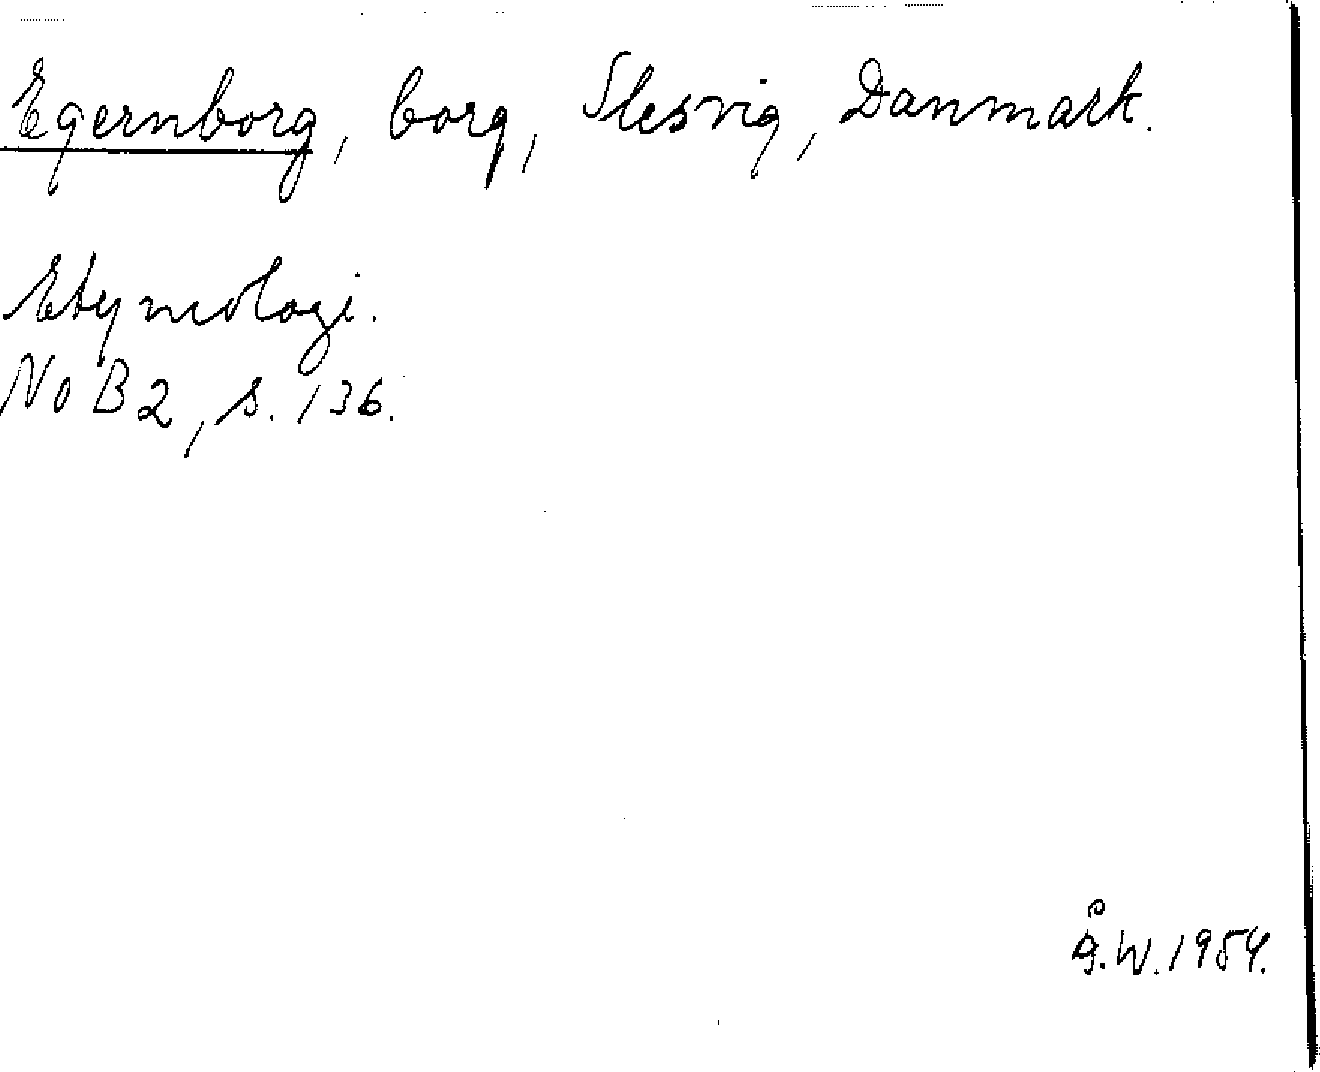 Egernborg, borg, Slesvig, Danmark.
Etymologi.
NoB 2, s. 136.
Å.W. 1954.